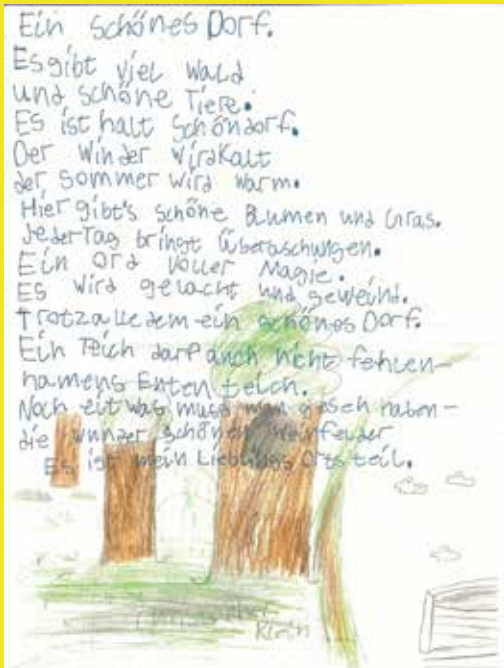 Ein schönes Dorf.
Es gibt viel Wald
und schöne Tiere.
Es ist halt Schöndorf.
Der Winder wird kalt
der Sommer wird warm.
Hier gibt's schöne Blumen und Gras.
Jeder Tag bringt Überaschungen.
Ein Ord voller Magie.
Es wird gelacht und geweint.
Trotz alledem ein schönes Dorf.
Ein Teich darf auch nicht fehlen-
namens Ententeich.
Noch etwas muss man gesehn haben-
die wunderschönen felder
Es ist mein Lieblings Ortsteil.
Klein